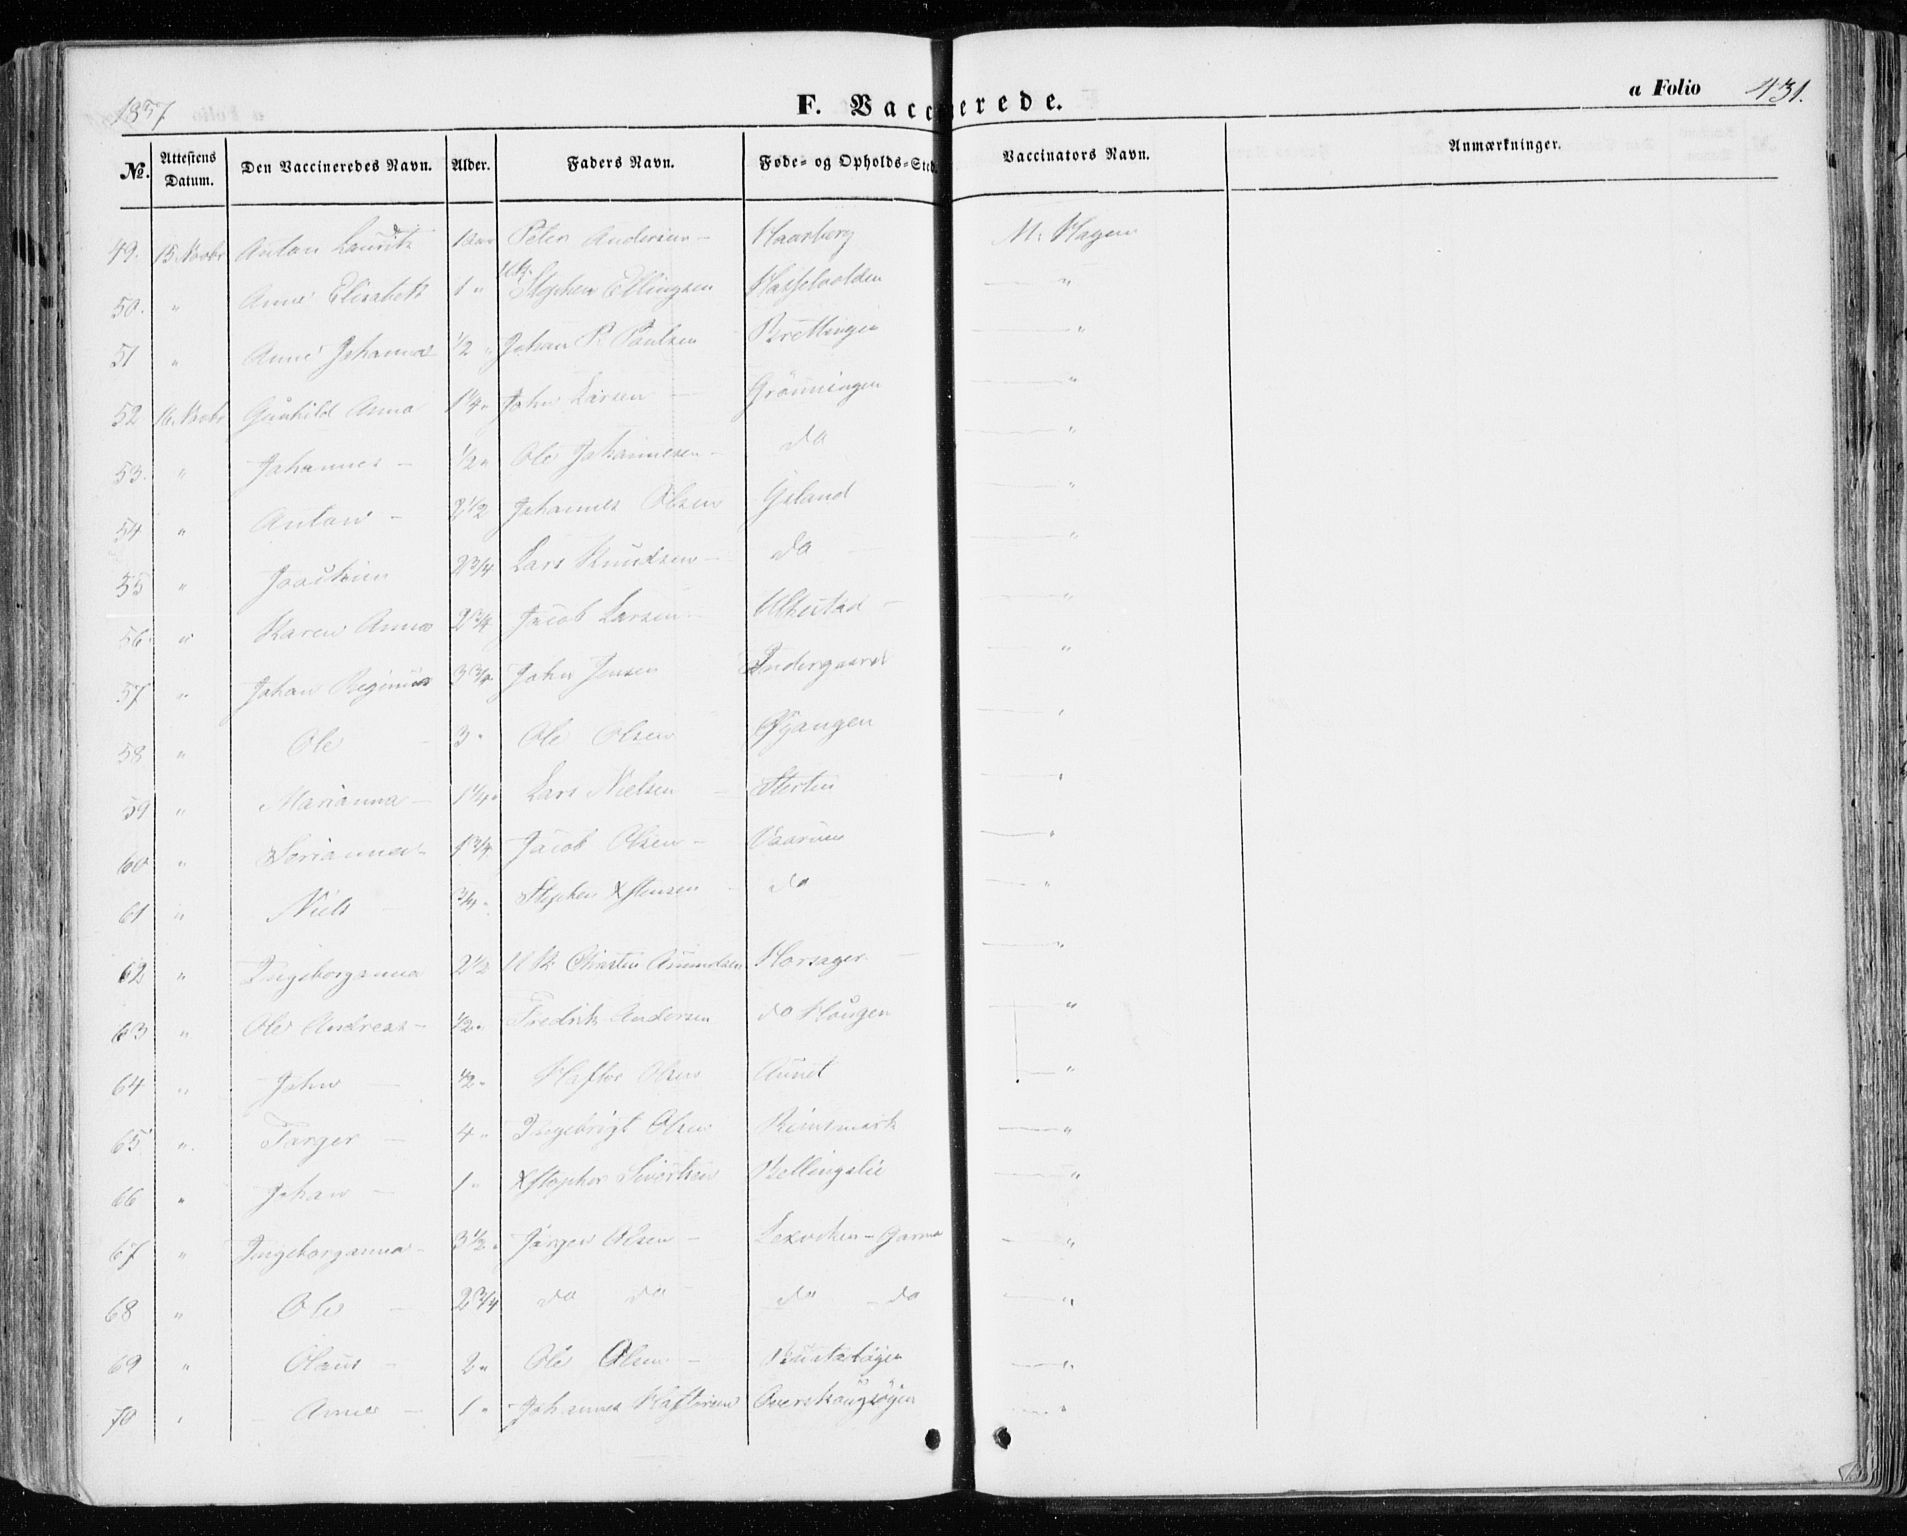 1857
F. Vaccinerede.
a Folio 431.
No. Attestens Datum. Den Vaccineredes Navn. Alder. Faders Navn. Føde- og Opholds-Sted. Vaccinators Navn. Anmærkninger.
49. 15 Novbr Anton Lauritz 1 Aar Peter Andersen - Haarberg M. Hagen
50. " Anne Elisabeth 1 " Stephen Ellingsen Hasselvolden — "
51 " Anne Johanna 1/2 " Johan P. Paulsen Brettingen — "
52 16 Novbr Gunhild Anna 1 1/4 " John Larsen — Grönningen — "
53. " Johannes - 1/2 " Ole Johannesen - do — "
54 " Anton - 2 1/2 Johannes Olsen Ysland — "
55 " Joachim 2 3/4 Lars Knudsen - do — — "
56. " Karen Anna 2 3/4 Jacob Larsen - Ulkestad - — "
57 " Johan Reginus 3 3/4 John Jensen Indergaard — "
58 " Ole - 3 " Ole Olsen Gjangen — "
59 " Marianna - 1 1/4 " Lars Nielsen - Sterten — "
60 " Lorianna - 1 3/4 Jacob Olsen - Vaarnes — "
61 " Niels - 3/4 " Stephen Xstensen - do — "
62 " Ingeborganna 2 1/2 U.K. Christen Amundsen Horsager - — "
63 " Ole Andreas - 1/2 " Fredrik Andersen do Haugen — "
64 " John - 1/2 " Haftor Olsen Aunet — "
65 " Farger - 4 " Ingebrigt Olsen Reinsmark — "
66 " Johan - 1 " Xstopher Sivertsen Bellingslie — "
67 " Ingeborganna - 3 1/2 " Jörgen Olsen - Lexviken - — "
68 " Ole - 2 3/4 do do - do - do — "
69 " Olaus - 2 " Ole Olsen - — "
70 " Anne - 1 " Johannes Haftorsen Overskaugsøyen — "